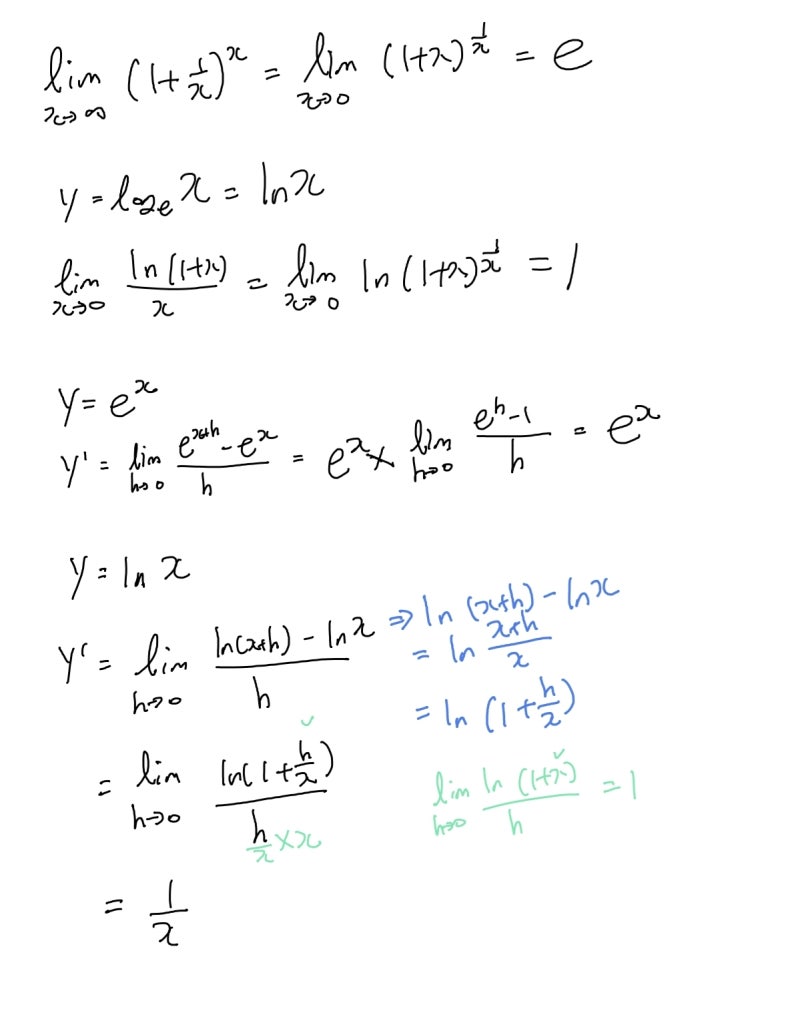 lim_{x→∞} (1+1/x)^x = lim_{x→0} (1+x)^{1/x} = e
y = log_e x = ln x
lim_{x→0} ln(1+x)/x = lim_{x→0} ln(1+x)^{1/x} = 1
y = e^x
y' = lim_{h→0} (e^{x+h} - e^x)/h = e^x × lim_{h→0} (e^h - 1)/h = e^x
y = ln x
y' = lim_{h→0} (ln(x+h) - ln x)/h
⇒ ln (x+h) - ln x
= ln (x+h)/x
= ln (1 + h/x)
= lim_{h→0} ln(1 + h/x)/(h/x × x)
lim_{h→0} ln (1+x)/h = 1
= 1/x